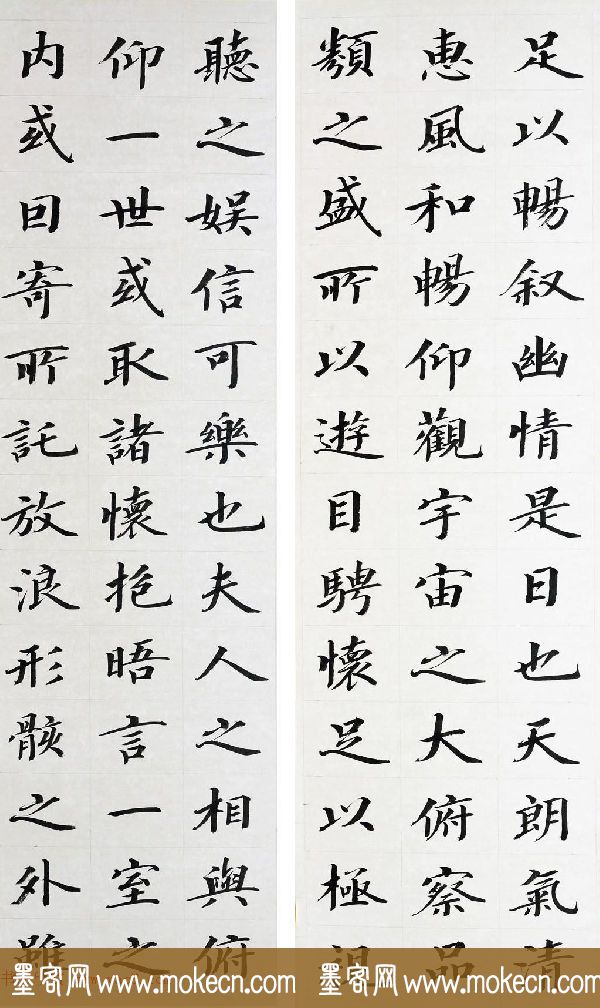 足以暢叙幽情是日也天朗氣清
惠風和暢仰觀宇宙之大俯察品
類之盛所以遊目騁懷足以極視
聽之娱信可樂也夫人之相與俯
仰一世或取諸懷抱晤言一室之
内或因寄所託放浪形骸之外雖
墨客网 www.mokecn.com
墨客网 www.mokecn.com